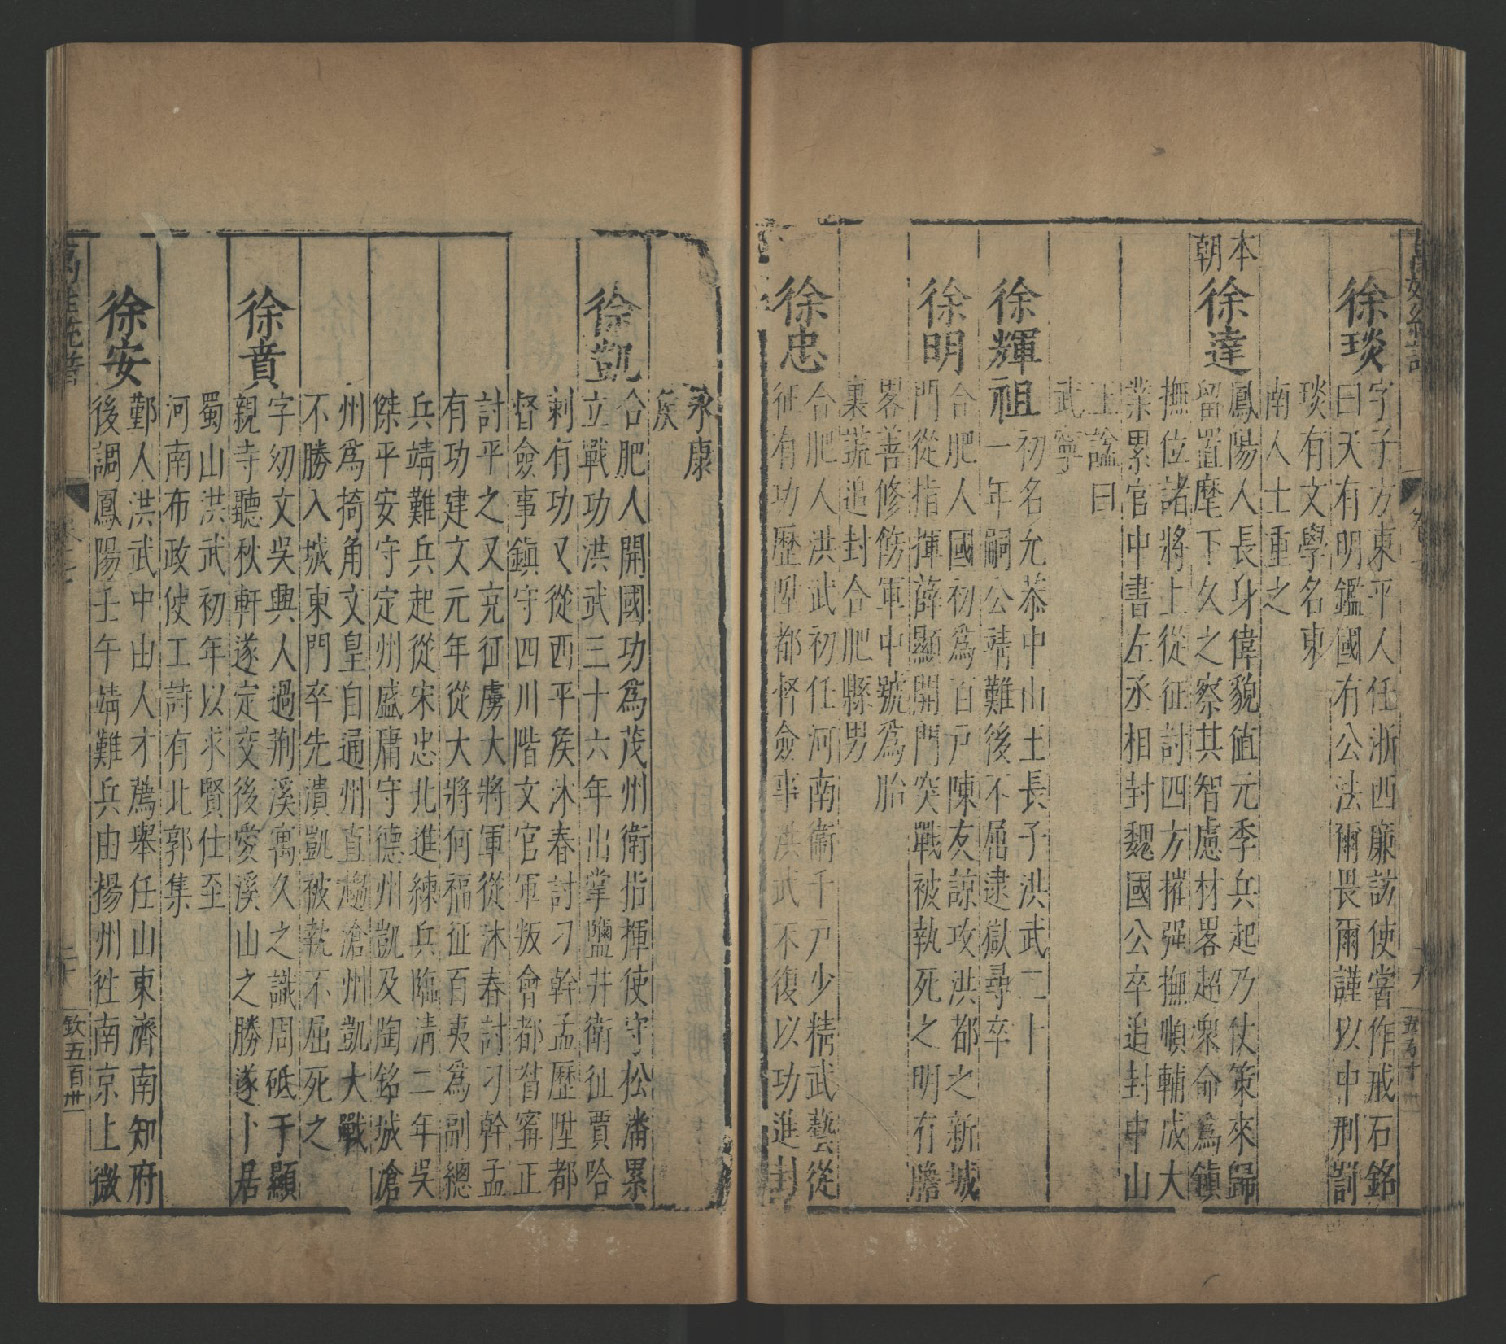 徐琰
字子方東平人任浙西廉訪使嘗作戒石銘
曰天有明鑑國有公法爾畏爾謹以中刑罰
琰有文學名東
南人士重之
本朝
徐達
鳳陽人長身偉貌値元季兵起乃仗策來歸
留置麾下久之察其智慮材畧超衆命爲鎮
撫位諸將上從征討四方摧强撫順輔成大
業累官中書左丞相封魏國公卒追封中山
王諡曰
武寧
徐輝祖
初名允恭中山王長子洪武二十
一年嗣公靖難後不屈逮獄尋卒
徐明
合肥人國初爲百戸陳友諒攻洪都之新城
門從指揮薛顯開門突戰被執死之明有膽
畧善修飭軍中號爲胎
裏謊追封合肥縣男
徐忠
合肥人洪武初任河南衞千戸少精武藝從
征有功歷陞都督僉事洪武不復以功進封
永康
矦
徐凱
合肥人開國功爲茂州衛指揮使守松潘累
立戰功洪武三十六年出掌鹽井衛征賈哈
剌有功又從西平矦沐春討刁幹孟歷陞都
督僉事鎮守四川階文官軍叛會都督甯正
討平之又充征虜大將軍從沐春討刁幹孟
有功建文元年從大將何福征百夷爲副總
兵靖難兵起從宋忠北進練兵臨淸二年吳
傑平安守定州盛庸守德州凱及陶銘城滄
州爲掎角文皇自通州直趨滄州凱大戰
不勝入城東門卒先潰凱被執不屈死之
徐賁
字幼文吳興人過荆溪寓久之識周砥于顯
親寺聽秋軒遂定交後愛溪山之勝遂卜居
蜀山洪武初年以求賢仕至
河南布政使工詩有北郭集
徐安
鄞人洪武中由人才薦舉任山東濟南知府
後調鳳陽壬午靖難兵由揚州徃南京上微